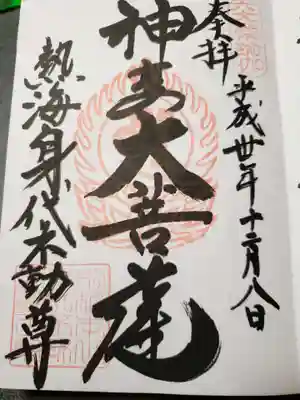 奉拝 平成卅年十二月八日
神変大菩薩
熱海身代不動尊